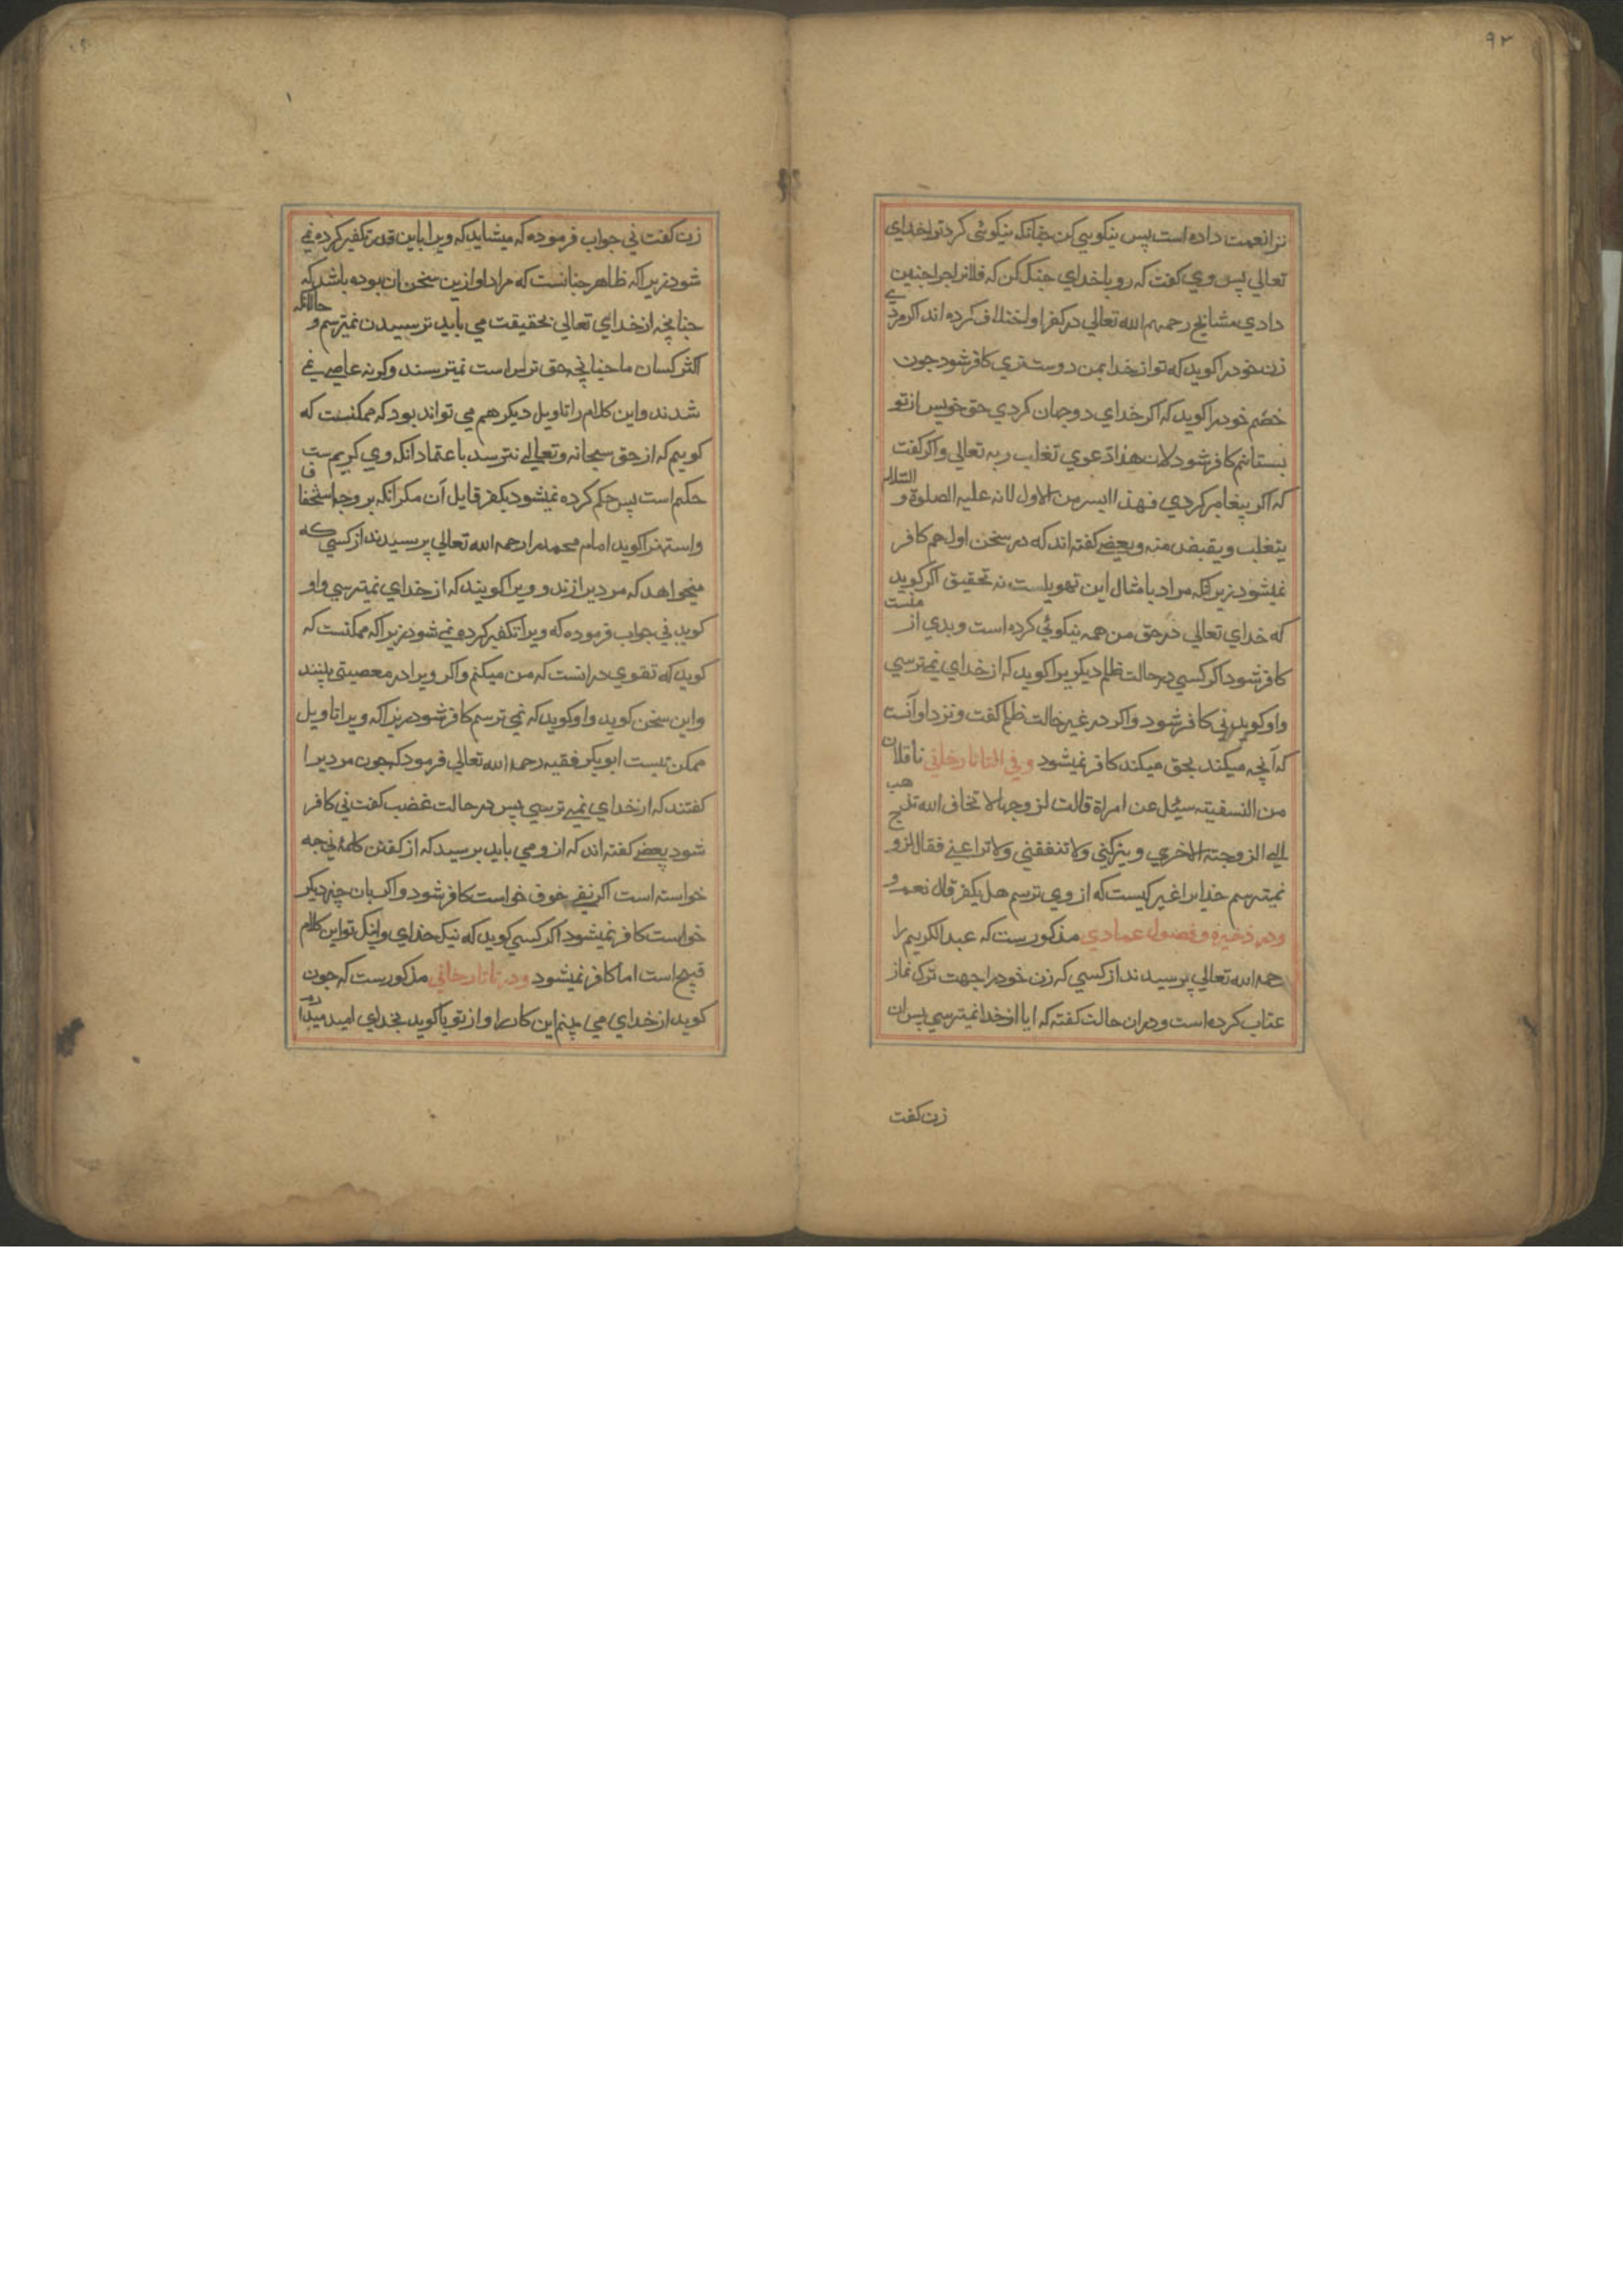 ۹۲
ترا نعمت داده است پس نیکویی کن چنانکه نیکوئی کرد ترا خدای
تعالی پس وی کفت که رو با خدای جنک کن که فلانرا چرا چنین
دادی مشایخ رحمهم الله تعالی در کفر او اختلاف کرده اند اکر مردی
زن خود را کوید که تو از خدا بمن دوست تری کافر شود جون
خصم خود را کوید که اکر خدای دو جهان کردی حق خویس از تو
بستانم کافر شود لان هذا دعوی تغلب ربه تعالی و اکر کفت
که اکر پیغامبر کردی فهذا ایسر من الاول لانه علیه الصلوة و السلام
یتغلب و یقبض منه و بعضی کفته اند که در سخن اول هم کافر
نمیشود زیرانکه مراد بامثال این تهویلست نه تحقیق اکر کوید
که خدای تعالی در حق من همه نیکوئی کرده است و بدی از منست
کافر شود اکر کسی در حالت ظلم دیکریرا کوید که از خدای نمیترسی
و او کوید نی کافر شود و اکر در غیر حالت ظلم کفت و نزد او آنست
که آنچه میکند بحق میکند کافر نمیشود و فی التاتارخانی ناقلا
من النسفیته سیٔل عن امراة قالت لزوجها لا تخاف الله تذهب
الی الزوجته الاخری و یترکنی ولا تنفقنی ولا تراعنی فقال الزوج
نمیترسم خدایرا غیر کیست که از وی ترسم هل یکفر قال نعم و
و در ذخیرة و فصول عمادی مذکورست که عبد الکریم را
رحمه الله تعالی پرسیدند از کسی که زن خود را جهت ترک نماز
عتاب کرده است و دران حالت کفته که ایا از خدا نمیترسی پس ان
زن کفت
زن کفت نی جواب فرموده که میشاید که ویرا باین قدر تکفیر کرده نمی
شود زیراکه ظاهر چنانست که مراد او ازین سخن ان بوده باشد که
چنانچه از خدای تعالی بحقیقت می باید ترسیدن نمیترسم و حالانکه
اکثر کسان ما چنانچه حق ترس است نمیترسند و کرنه عاصی نمی
شدند و این کلام را تاویل دیکر هم می تواند بود که ممکنست که
کوییم که از حق سبحانه و تعالی نترسد باعتماد انکه وی کریم ست
حکم است پس حکم کرده نمیشود بکفر قایل آن مکر انکه بر وجه استخفاف
و استهزا کوید امام محمد را رحمه الله تعالی پرسیدند از کسی که
میخواهد که مردیرا زند و ویرا کویند که از خدای نمیترسی و او
کوید نی جواب فرموده که ویرا تکفیر کرده نمی شود زیراکه ممکنست که
کوید که تقوی در انست که من میکنم و اکر ویرا در معصیتی بینند
و این سخن کوید و او کوید که نمی ترسم کافر شود زیراکه ویرا تاویل
ممکن نیست ابوبکر فقیه رحمه الله تعالی فرمود که جون مردیرا
کفتند که از خدای نمی ترسی پس در حالت غضب کفت نی کافر
شود بعضی کفته اند که ازو می باید پرسید که از کفتن کلمهٔ نی چه
خواسته است اکر نفی خوف خواست کافر شود و اکر بان چیز دیکر
خواست کافر نمیشود اکر کسی کوید که نیک خدای و نیک تو این کلام
قبیح است اما کافر نمیشود و در تاتارخانی مذکورست که جون
کوید از خدای می بینم این کار را و از تو یا کوید بخدای امید میدارد